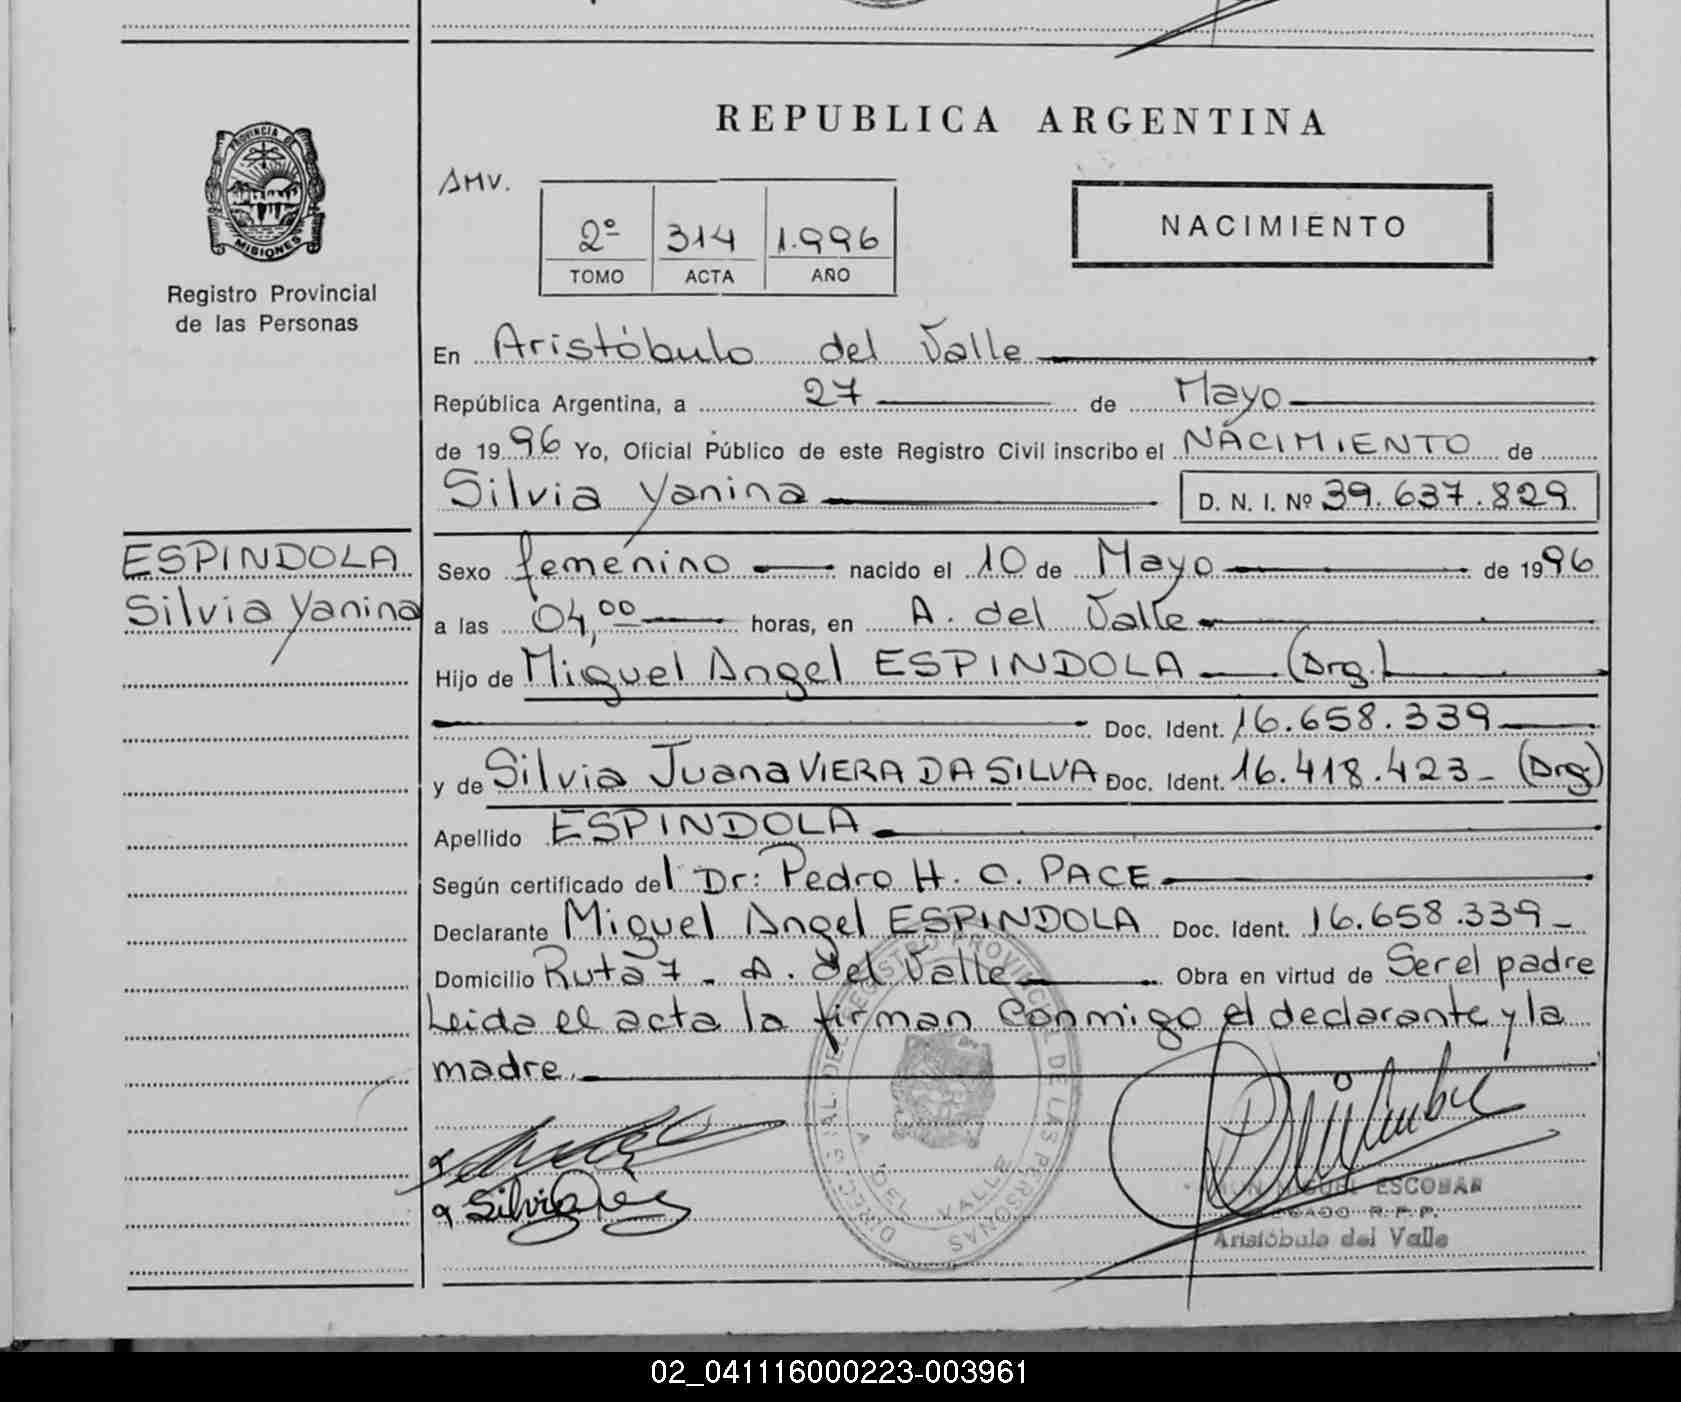 REPUBLICA ARGENTINA
PROVINCIA DE
MISIONES
Registro Provincial
de las Personas
AMV.
2º 314 1.996
TOMO ACTA AÑO
NACIMIENTO
En Aristóbulo del Valle
República Argentina, a 27 de Mayo
de 1996 Yo, Oficial Público de este Registro Civil inscribo el NACIMIENTO de
Silvia Yanina D. N. I. Nº 39.637.829
ESPINDOLA
Silvia Yanina
Sexo femenino nacido el 10 de Mayo de 1996
a las 04,00 horas, en A. del Valle
Hijo de Miguel Angel ESPINDOLA (Arg.)
Doc. Ident. 16.658.339
y de Silvia Juana VIERA DA SILVA Doc. Ident. 16.418.423 - (Arg)
Apellido ESPINDOLA
Según certificado del Dr: Pedro H. C. PACE
Declarante Miguel Angel ESPINDOLA Doc. Ident. 16.658.339 -
Domicilio Ruta 7 - A. del Valle Obra en virtud de Ser el padre
Leida el acta la firman Conmigo el declarante y la
madre.
Silvia
REGISTRO PROVINCIAL DE LAS PERSONAS
A. DEL VALLE
MIGUEL ESCOBAR
R.P.P.
Aristóbulo del Valle
02_041116000223-003961